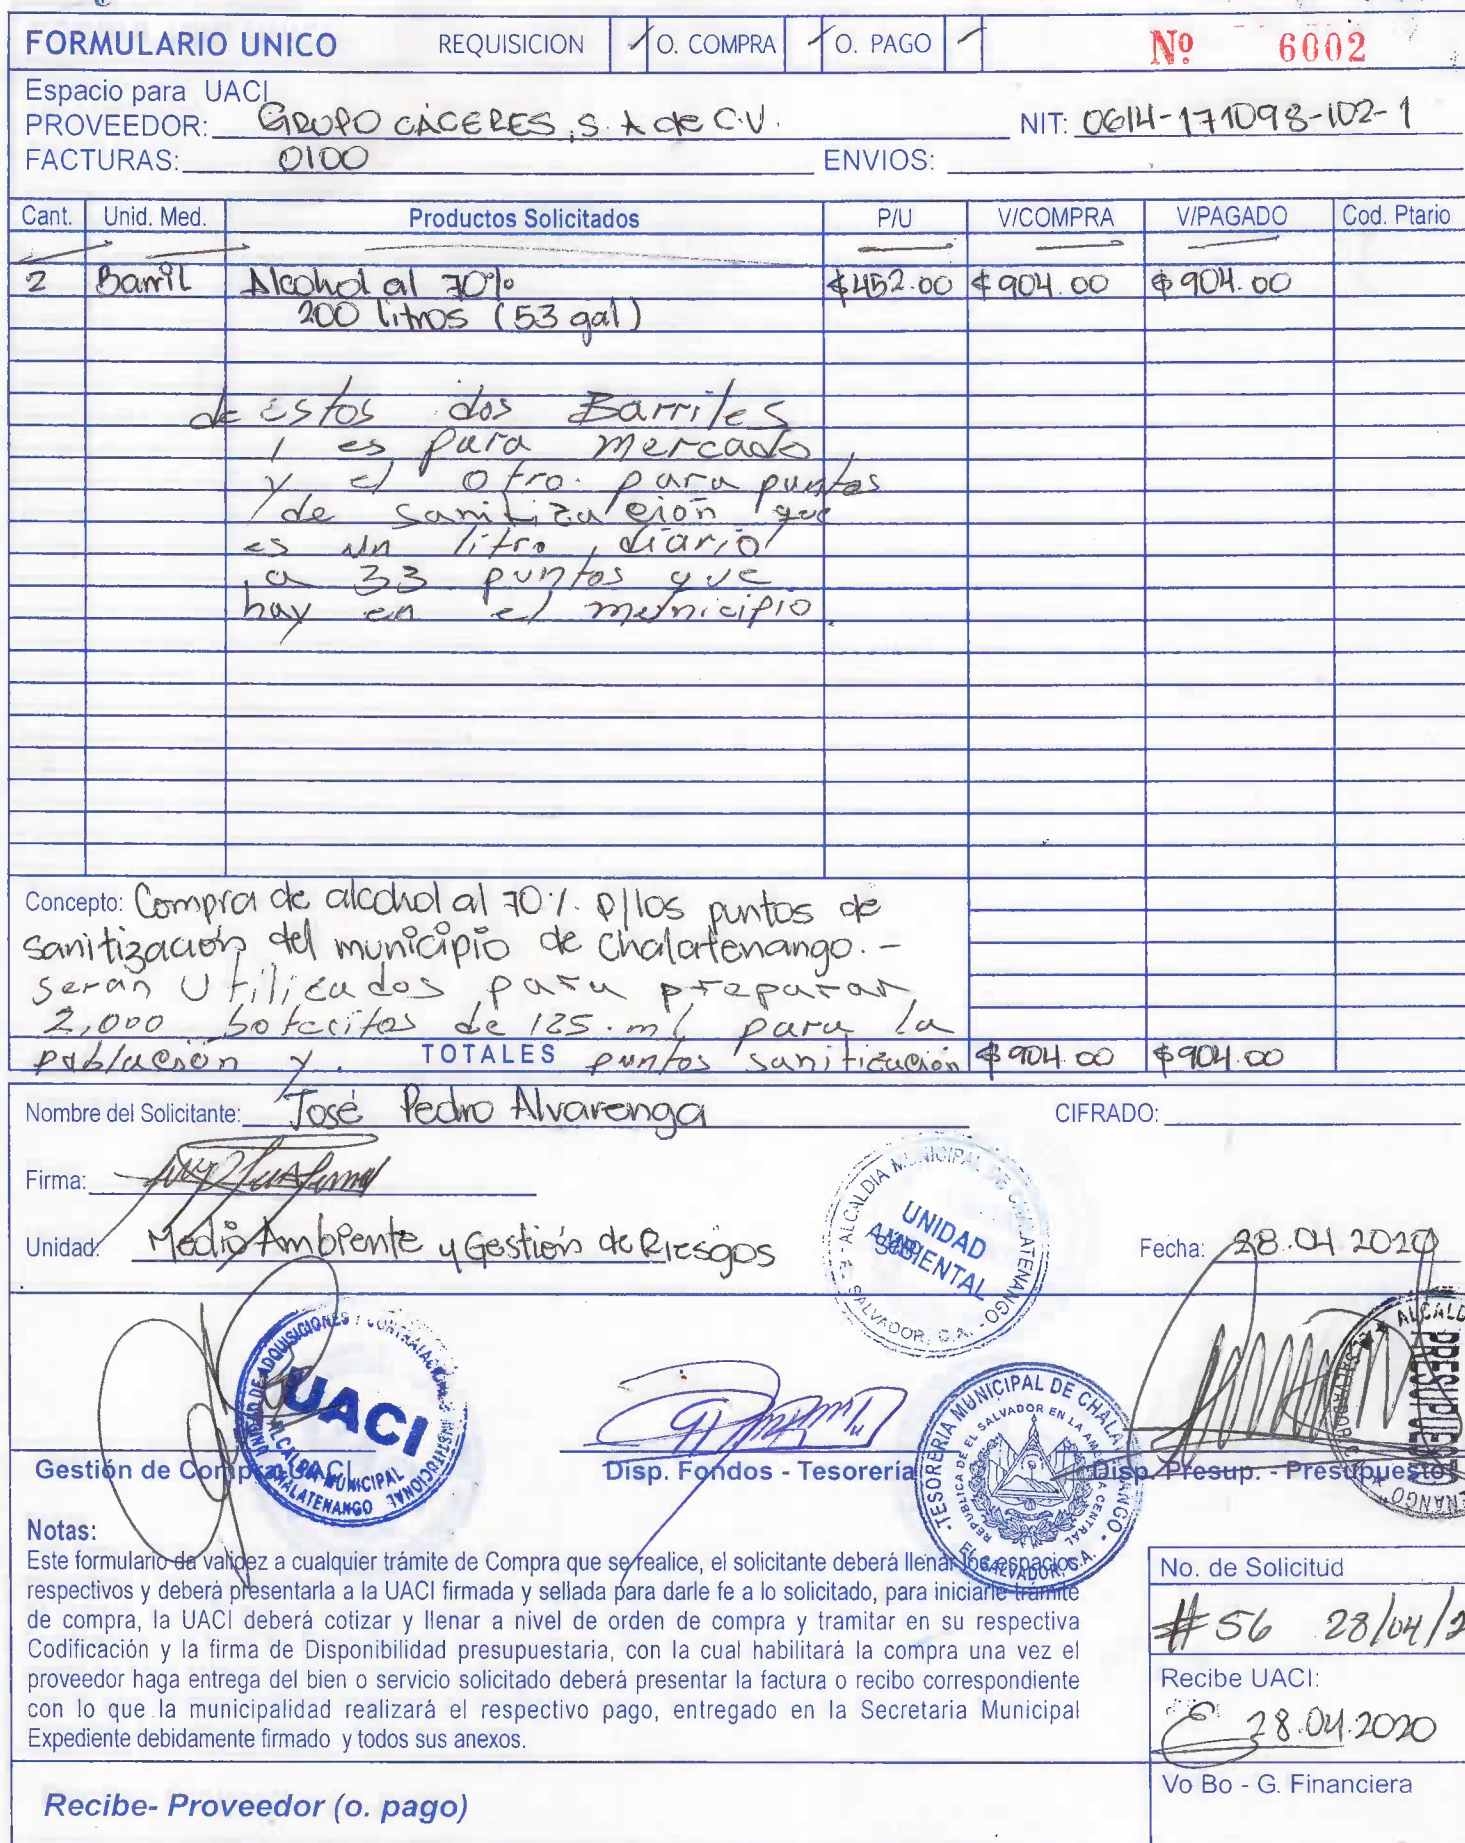 FORMULARIO UNICO REQUISICION O. COMPRA O. PAGO Nº 6002
Espacio para UACI
PROVEEDOR: GRUPO CÁCERES, S. A de C.V. NIT: 0614-171098-102-1
FACTURAS: 0100 ENVIOS:
Cant. Unid. Med. Productos Solicitados P/U V/COMPRA V/PAGADO Cod. Ptario
2 Barril Alcohol al 70% $452.00 $904.00 $904.00
200 litros (53 gal)
de estos dos Barriles
1 es para mercado,
y el otro para puntos
de sanitización que
es un litro, diario
a 33 puntos que
hay en el municipio.
Concepto: Compra de alcohol al 70%. p/los puntos de
sanitización del municipio de Chalatenango.-
Serán Utilizados para preparar
2,000 botecitos de 125.ml para la
población y. TOTALES puntos sanitización $904.00 $904.00
Nombre del Solicitante: José Pedro Alvarenga CIFRADO:
Firma:
ALCALDIA MUNICIPAL DE CHALATENANGO
UNIDAD
AMBIENTAL
EL SALVADOR, C.A.
Unidad: Medio Ambiente y Gestión de Riesgos Fecha: 28.04.2020
UNIDAD DE ADQUISICIONES Y CONTRATACIONES INSTITUCIONAL
UACI
ALCALDIA MUNICIPAL
CHALATENANGO
TESORERIA MUNICIPAL DE CHALATENANGO
REPUBLICA DE EL SALVADOR EN LA AMERICA CENTRAL
EL SALVADOR, C.A.
Gestión de Compra UACI Disp. Fondos - Tesorería Disp. Presup. - Presupuesto
Notas:
Este formulario da validez a cualquier trámite de Compra que se realice, el solicitante deberá llenar los espacios
respectivos y deberá presentarla a la UACI firmada y sellada para darle fe a lo solicitado, para iniciarle trámite
de compra, la UACI deberá cotizar y llenar a nivel de orden de compra y tramitar en su respectiva
Codificación y la firma de Disponibilidad presupuestaria, con la cual habilitará la compra una vez el
proveedor haga entrega del bien o servicio solicitado deberá presentar la factura o recibo correspondiente
con lo que la municipalidad realizará el respectivo pago, entregado en la Secretaria Municipal
Expediente debidamente firmado y todos sus anexos.
No. de Solicitud
#56 28/04/2
Recibe UACI:
28.04.2020
Vo Bo - G. Financiera
Recibe- Proveedor (o. pago)